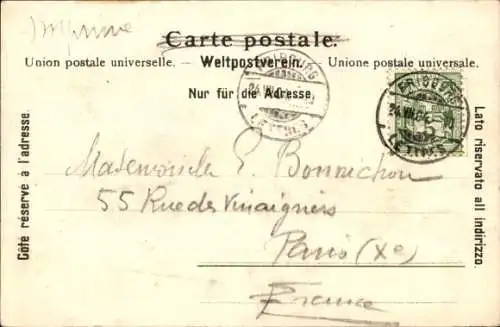 Imprimé
Carte postale.
Union postale universelle. — Weltpostverein. — Unione postale universale.
Nur für die Adresse.
Côté réservé à l'adresse.
Lato riservato all indirizzo.
FRIBOURG
LETTRES
FRIBOURG
LETTRES
Mademoiselle E. Bonnichon
55 Rue des Vinaigriers
Paris (Xe)
France